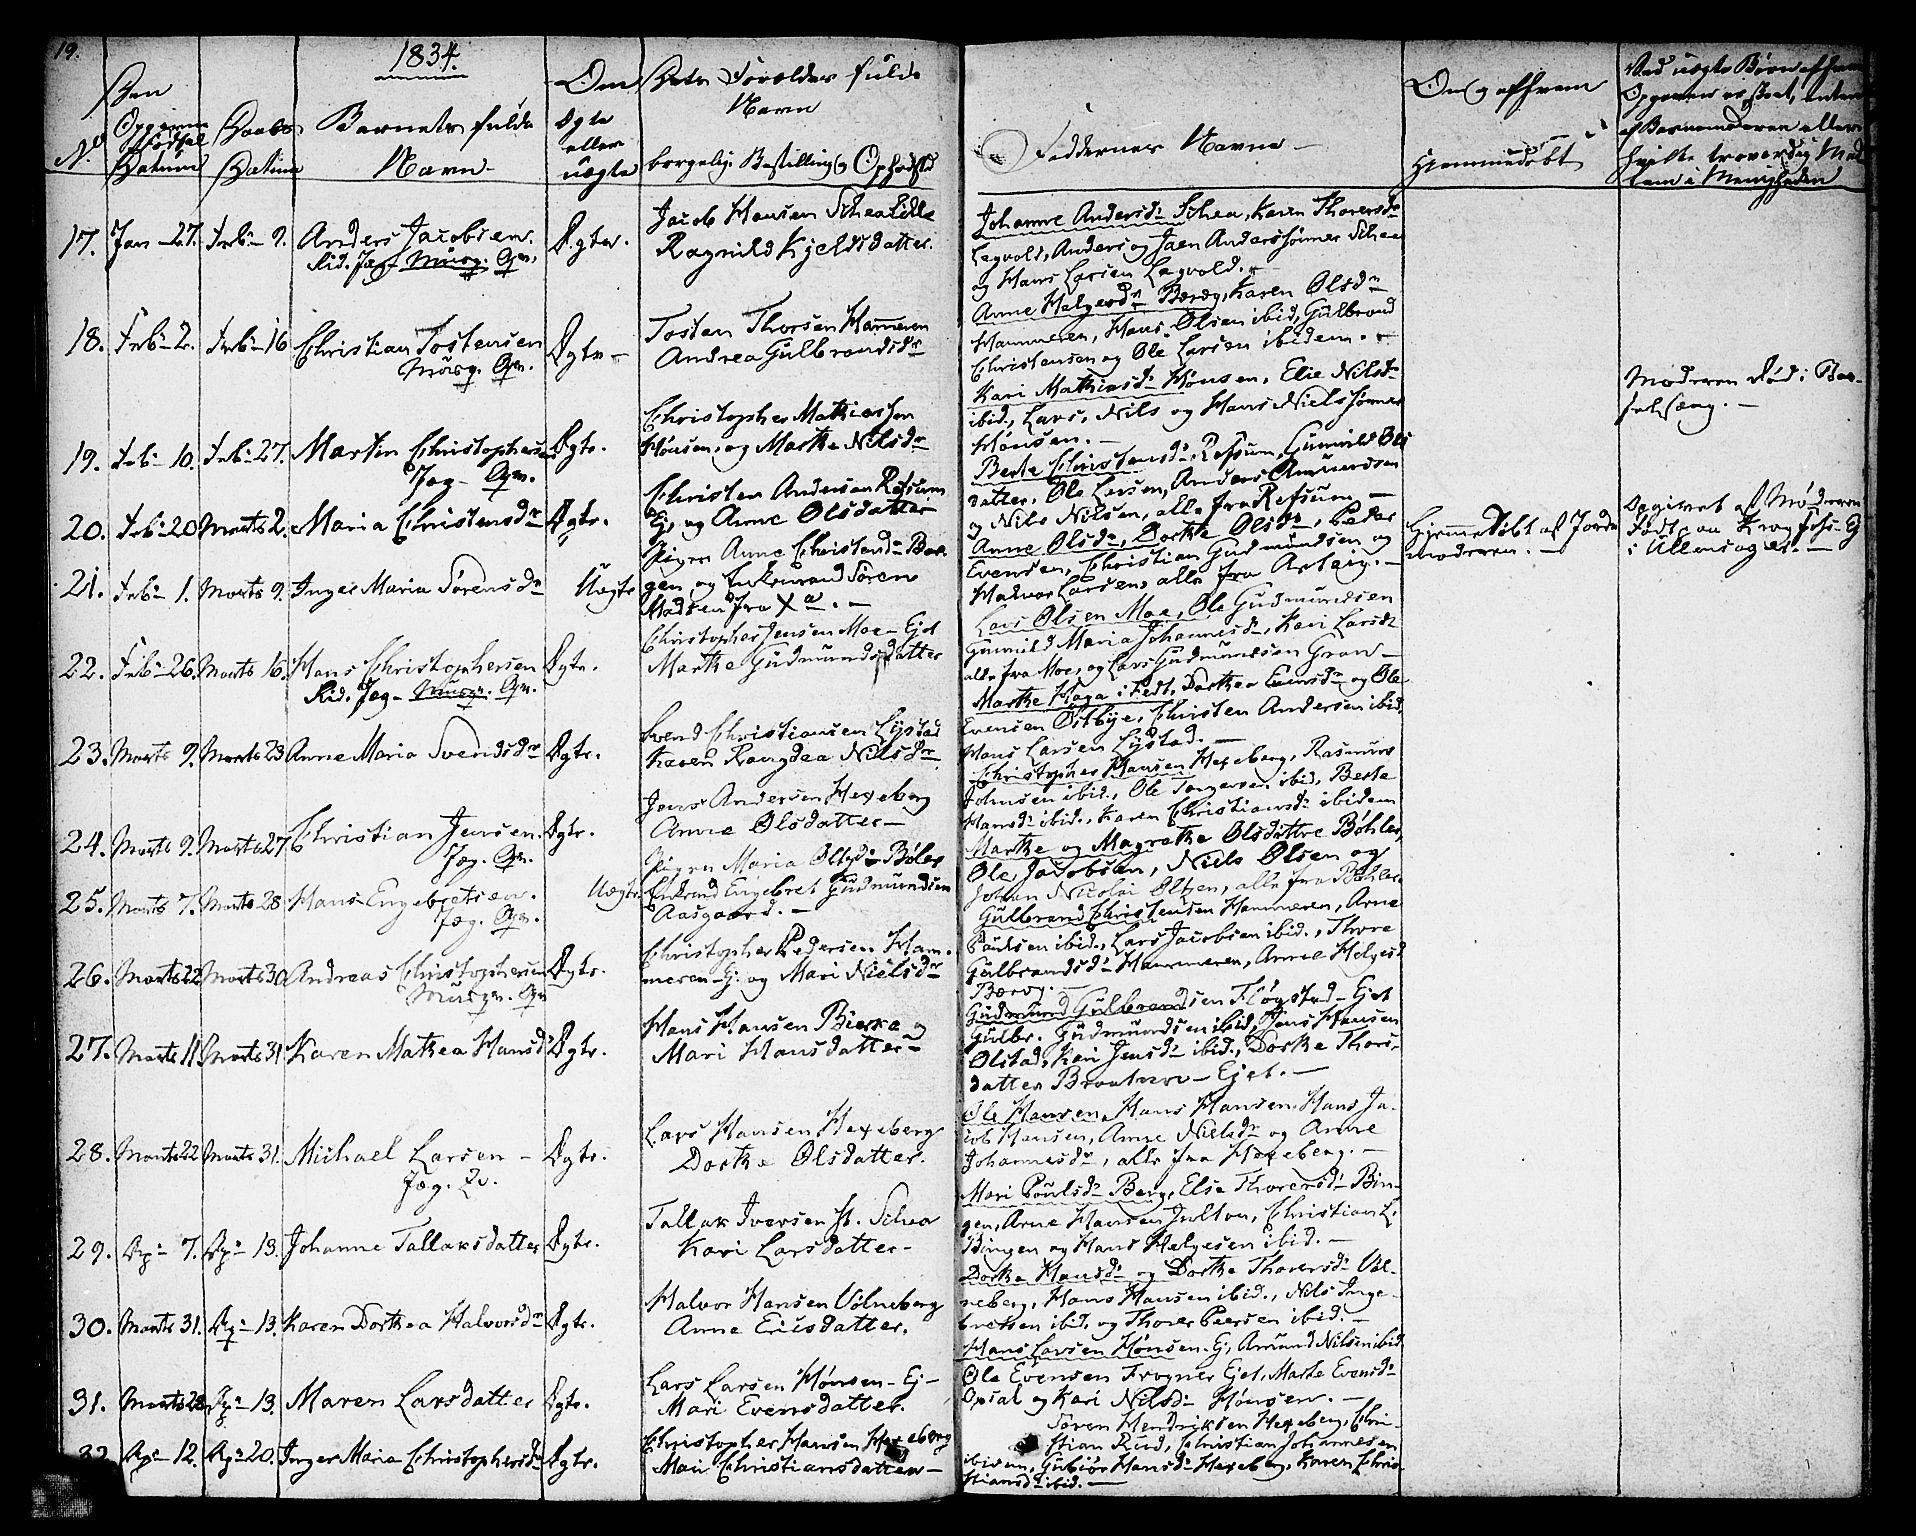 19.
1834.
Den
Opgivne
Fødsel
Datum
No
Daabs
Datum
Barnets fulde
Navn
Om
Ægte
eller
uægte
Forældres fulde
Navn
borgelig Bestilling Opholdst
Faddernes Navne
Om afhvem
Hjemmedøbt
Ved uægte Børn af hvem
Opgaven er skeet, enten
af Barnemoderen eller
hvilke troværdig Med
lem i Menigheden
17. Jan 27. Feb. 9. Anders Jacobsen. Ægte. Jacob Hansen Schea
Ragnild Kjeldsdatter.
Johanne Andersdr Schea, Karen Thoresdr
Legvold, Anders og Joen Anderssønner Schea
og Hans Larsen Legvold.
18. Feb. 2. Feb. 16 Christian Tostensen Ægte Tosten Thorsen Hammeren
Andrea Gulbrandsdr
Anne Helgesdr Berg, Karen Olsdr
Hammeren, Hans Olsen ibid, Gulbrand
Christensen og Ole Larsen ibidem.
19. Feb. 10. Feb. 27. Martin Christophersen Ægte. Christopher Mathiassen
Hønsen, og Marthe Nilsdr
Kari Mathiasdr Hønsen, Elie Nilsdr
ibid, Lars, Nils og Hans Nielssønner
Hønsen.
Moderen død i Bar-
selseng.
20. Feb. 20 Marts 2. Maria Christensdr Ægte. Christen Andersen Refsum
Ej. og Anne Olsdatter
Berte Christensdr Refsum, Gunnild Ols
datter, Ole Larsen, Anders Amundsen
og Nils Nilsen, alle fra Refsum
21. Feb. 1. Marts 9. Inger Maria Sørensdr Uægte Pigen Anne Christensdr
gen og Søren
Madsen fra Xa.
Anne Olsdr, Dorthe Olsdr, Peder
Evensen, Christian Gudmundsen og
Halvor Larsen, alle fra
Hjemmedøbt af Jorde
moderen.
Opgivet af Moderen
Født paa
i Ullensager.
22. Feb. 26. Marts 16. Hans Christophersen Ægte. Christopher Jensen Moe Ejet
Marthe Gudmundsdatter
Lars Olsen Moe, Ole Gudmundsen
Gunnild Maria Johannesdr, Kari Larsdr
alle fra Moe, og Lars Gudmundsen Gran
23. Marts 9. Marts 23 Anne Maria Svendsdr Ægte. Svend Christiansen Lystad
Karen Rangdea Nilsdr
Marthe Haga i Fedt, Dorthea Evensdr og Ole
Evensen Østbye, Christen Andersen ibid,
Hans Larsen Lystad.
24. Marts 9. Marts 27 Christian Jensen. Ægte. Jens Andersen Hexeberg
Anne Olsdatter
Christopher Hansen Hexeberg, Rasmus
Johnsen ibid., Ole Torgersen ibid, Berte
Hansdr ibid., Karen Christiansdr ibidem
25. Marts 7. Marts 28 Hans Engebretsen. Uægte. Pigen Maria Olsdr Bøler
Engebret Gudmundsen
Aasgaard.
Marthe og Magrethe Olsdattre Bøhler,
Ole Jacobsen, Niels Olsen og
Johan Nicolai Olsen, alle fra Bøhler
26. Marts 22 Marts 30 Andreas Christophersen Ægte. Christopher Pedersen Ham-
meren Ej. og Mari Nielsdr
Gulbrand Christensen Hammeren, Arne
Paulsen ibid., Lars Jacobsen ibid., Thore
Gulbrandsdr Hammeren, Anne Helgesd
Berg.
27. Marts 11 Marts 31 Karen Mathea Hansdr Ægte. Hans Hansen Bierke og
Mari Hansdatter
Gudmund Gulbrandsen Fløgstad Ejet
Gulbr. Gudmundsen ibid, Hans Hansen
Ølstad, Kari Jensdr ibid., Dorthe Thors-
datter Ejet.
28. Marts 22 Marts 31. Michael Larsen Ægte. Lars Hansen Hexeberg
Dorthe Olsdatter.
Ole Hansen, Hans Hansen, Hans Ja-
cob Hansen, Anne Nielsdr og Anne
Johannesdr, alle fra Hexeberg.
29. Ap. 7. Ap. 13. Johanne Tallaksdatter Ægte. Tallak Iversen Schea
Kari Larsdatter
Mari Poulsdr Berg, Else Thoresdr Bin-
gen, Arne Hansen Julton, Christian L.
Bingen og Hans Helgesen ibid.
30. Marts 31. Ap. 13. Karen Dorthea Halvorsdr Ægte. Halvor Hansen Vølneberg
Anne Ericsdatter.
Dorthe Hansdr og Dorthe Thoresdr Vøl-
neberg, Hans Hansen ibid., Nils Inge-
bretsen ibid. og Thore Peersen ibid.
31. Marts 28 Ap. 13. Maren Larsdatter Ægte. Lars Larsen Hønsen Ej
Mari Evensdatter.
Hans Larsen Hønsen Ej, Amund Nilsen ibid
Ole Evensen Frogner Ejet, Marte Evensdr
Opsal og Kari Nilsdr Hønsen.
32 Ap. 12. Ap. 20. Inger Maria Christophersdr Ægte. Christopher Hansen Hexeberg
Mari Christiansdatter
Søren Hendriksen Hexeberg, Chri-
stian Rud, Christian Johannesen
ibidem, Gubiør Hansdr Hexeberg, Karen Chris
tiansdr ibid.